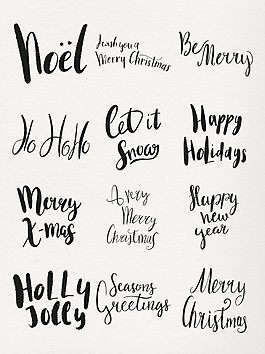 Noël
Wish you a
Merry Christmas
Be
Merry
Ho HoHo
Let it
Snow
Happy
Holidays
Merry
X-mas
A very
Merry
Christmas
Happy
new
year
Holly
Jolly
Seasons
Greetings
Merry
Christmas